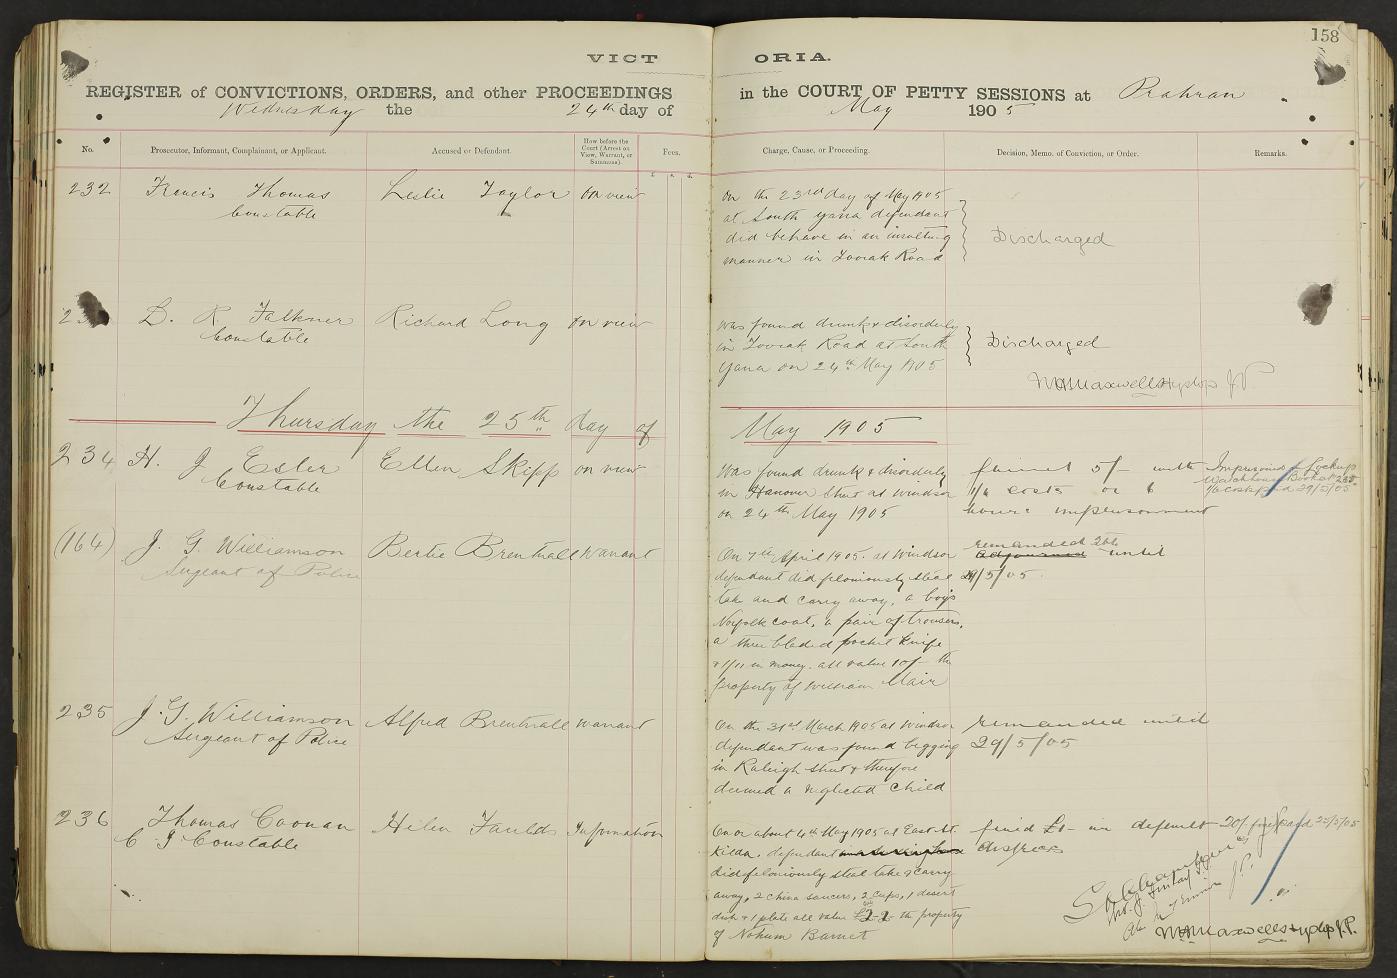 158
VICTORIA.
REGISTER of CONVICTIONS, ORDERS, and other PROCEEDINGS in the COURT OF PETTY SESSIONS at Prahran
Wednesday the 24th day of May 1905
No.
Prosecutor, Informant, Complainant, or Applicant.
Accused or Defendant.
How before the Court (Arrest on View, Warrant, or Summons).
Fees.
£ s. d.
Charge, Cause, or Proceeding.
Decision, Memo. of Conviction, or Order.
Remarks.
232
Francis Thomas
Constable
Leslie Taylor
on view
On the 23rd day of May 1905
at South Yarra defendant
did behave in an insulting
manner in Toorak Road
Discharged
D. R. Falkner
Constable
Richard Long
on view
Was found drunk & disorderly
in Toorak Road at South
Yarra on 24th May 1905
Discharged
Maxwell Hyslop J.P.
Thursday the 25th day of May 1905
234
H. J Esler
Constable
Ellen Skipp
on view
Was found drunk & disorderly
in Hanover Street at Windsor
on 24th May 1905
fined 5/- with
1/6 costs or 6
hours imprisonment
Lockup
Watchhouse Book
paid 29/5/05
(164)
J. G. Williamson
Sergeant of Police
Bertie Brenthall
warrant
On 7th April 1905. at Windsor
defendant did feloniously steal
take and carry away, a boy's
Norfolk coat, a pair of trousers,
a three bladed pocket knife
& 1/11 in money. all value 10/- the
property of William Mair
remanded
adjourned until
29/5/05.
235
J. G. Williamson
Sergeant of Police
Alfred Brenthall
warrant
On the 31st March 1905 at Windsor
defendant was found begging
in Raleigh Street & therefore
deemed a neglected child
remanded until
29/5/05
236
Thomas Coonan
Constable
Helen Faulds
Information
On or about 4th May 1905 at East St.
Kilda. defendant
did feloniously steal take & carry
away, 2 china saucers, 2 cups, 1 desert
dish & 1 plate all value the property
of Nahum Barnet
fined £1- in default
distress
20/ fine paid 25/5/05
J.P.
Maxwell Hyslop J.P.